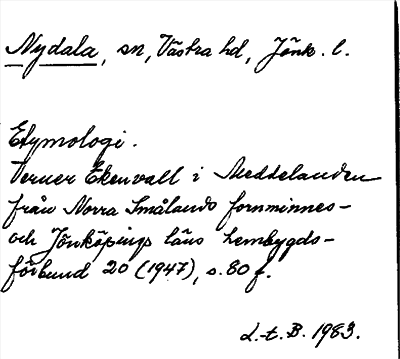 Nydala, sn, Västra hd, Jönk. l.
Etymologi.
Verner Ekenvall i Meddelanden
från Norra Smålands fornminnes-
och Jönköpings läns hembygds-
förbund 20 (1947), s. 80 f.
L.-t. B. 1983.